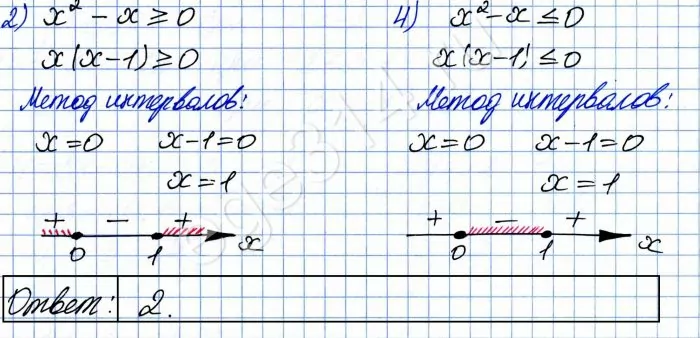 2) x² - x ≥ 0
x(x-1) ≥ 0
Метод интервалов:
x=0 x-1=0
x=1
+ - +
0 1 x
4) x² - x ≤ 0
x(x-1) ≤ 0
Метод интервалов:
x=0 x-1=0
x=1
+ - +
0 1 x
Ответ: 2.